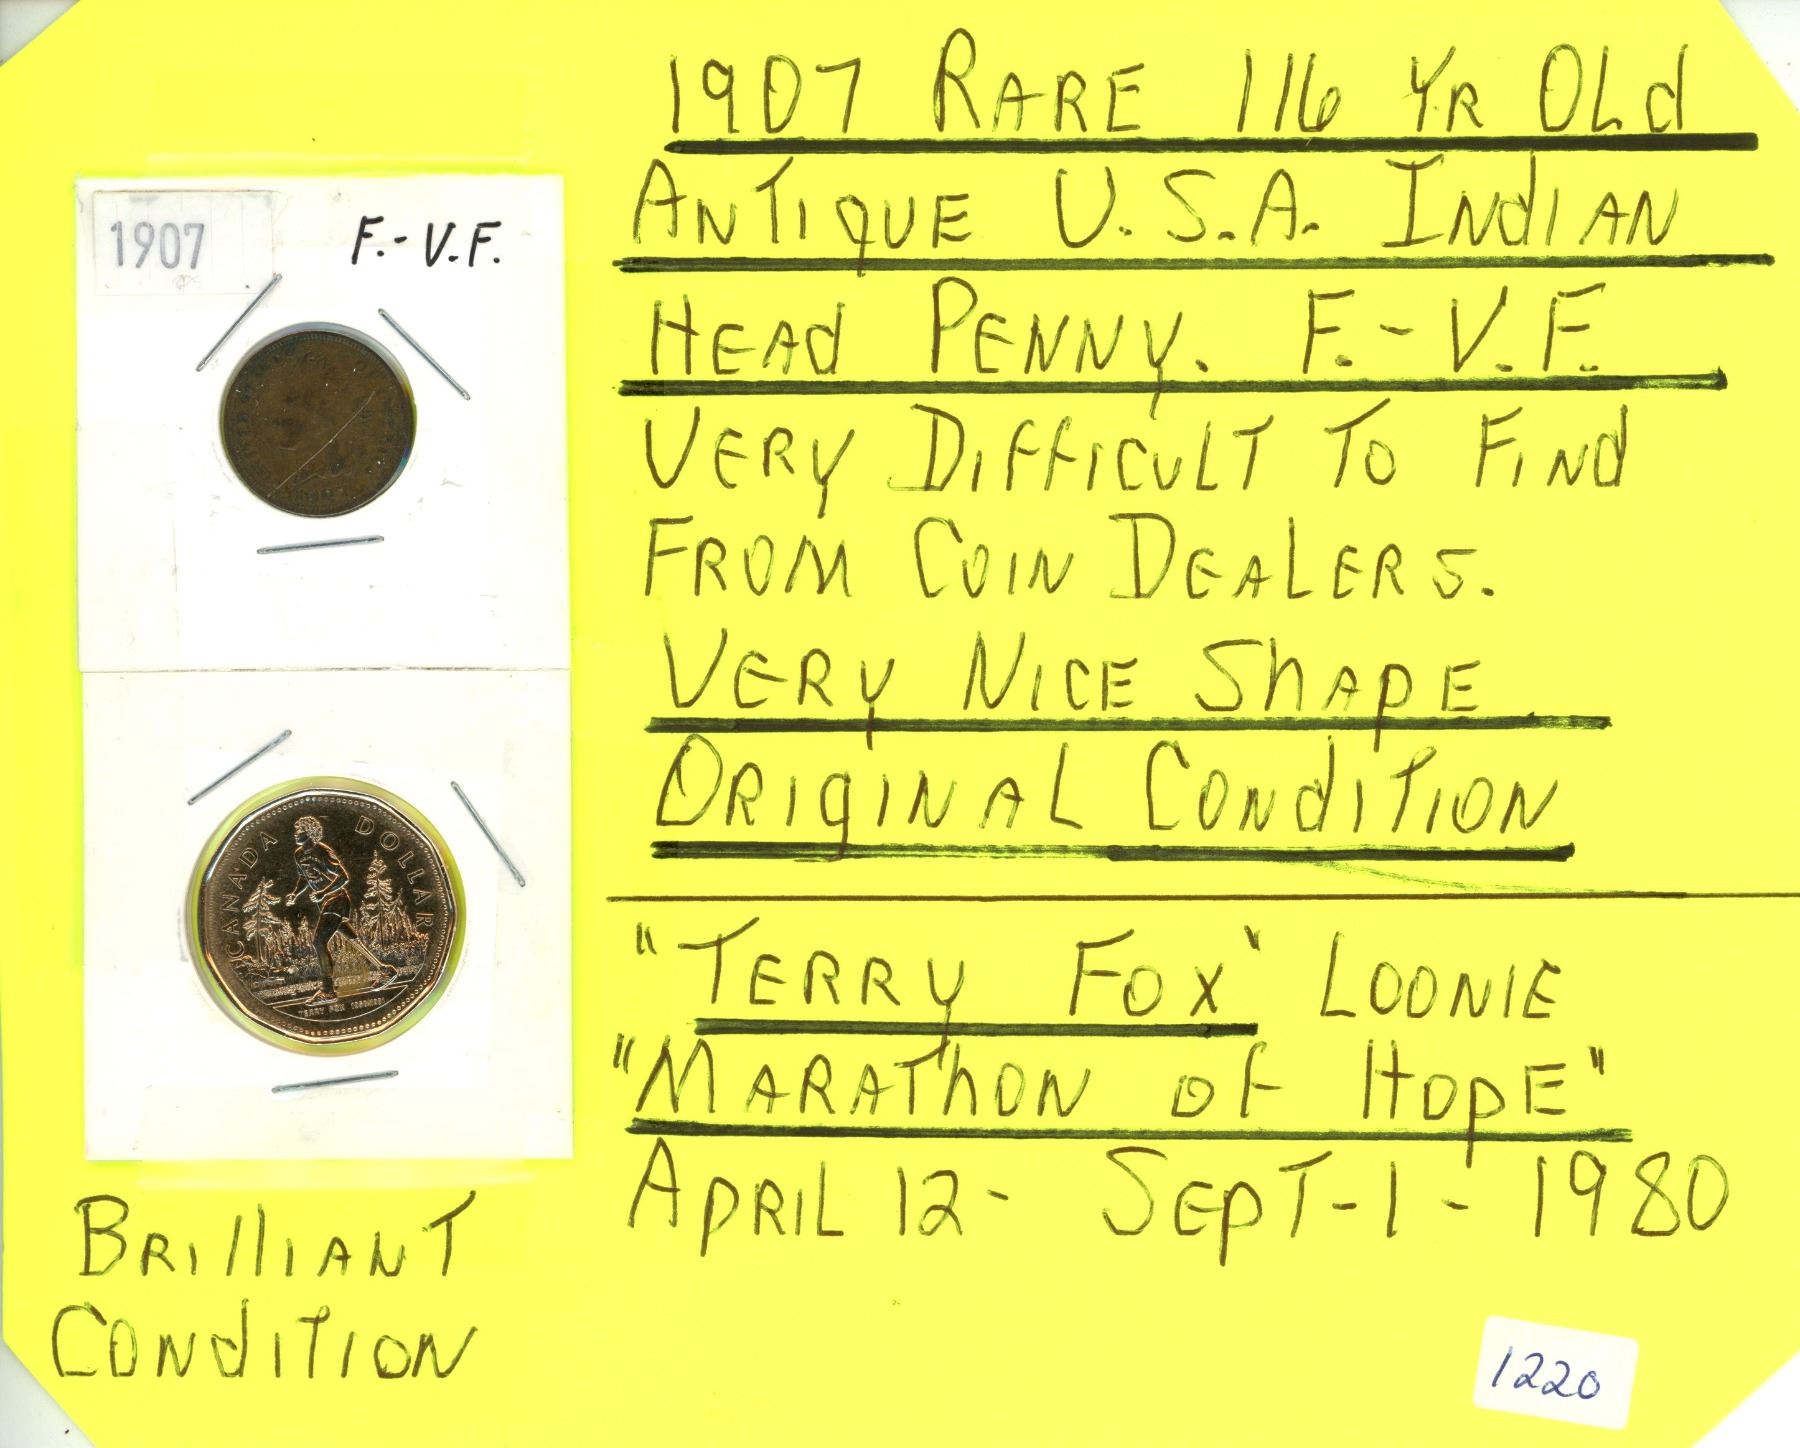 1907 RARE 116 YR OLd
ANTIQUE U.S.A. INdIAN
HEAd PENNY. F.-V.F.
VERY DIFFICULT TO FINd
FROM COIN DEALERS.
VERY NICE ShAPE
ORIGINAL CONdITION
"TERRY FOX" LOONIE
"MARAThON OF HOPE"
APRIL 12- SEPT-1-1980
1907 F.-V.F.
CANADA DOLLAR
TERRY FOX
BRIllIANT
CONdITION
1220